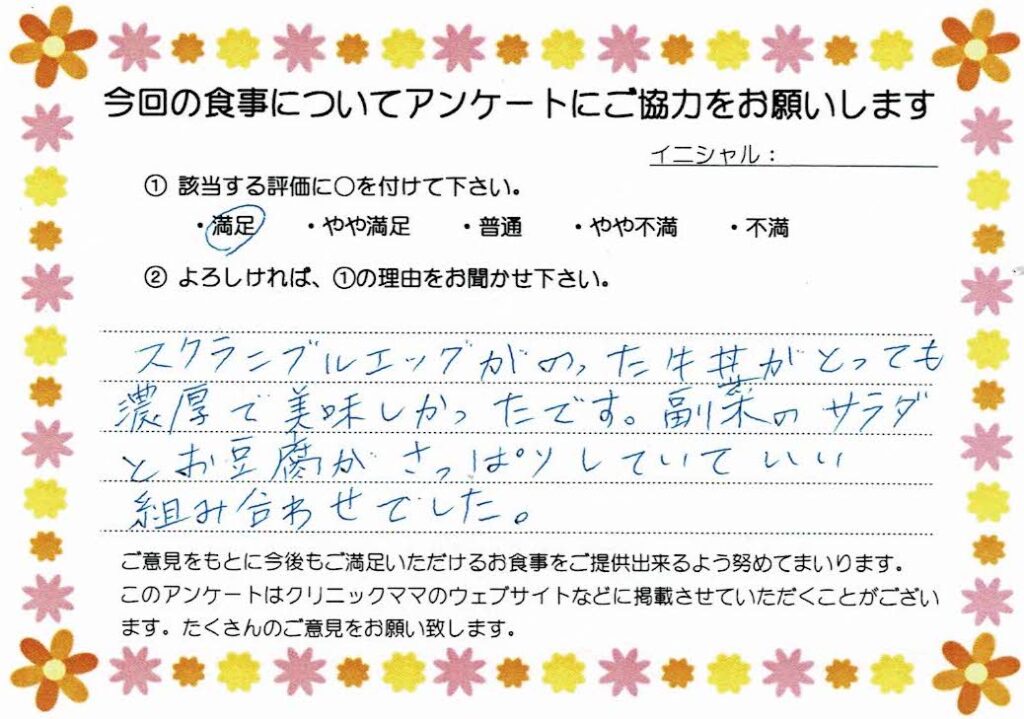 今回の食事についてアンケートにご協力をお願いします
イニシャル：
① 該当する評価に○を付けて下さい。
・満足 ・やや満足 ・普通 ・やや不満 ・不満
② よろしければ、①の理由をお聞かせ下さい。
スクランブルエッグがのった牛丼がとっても
濃厚で美味しかったです。副菜のサラダ
とお豆腐がさっぱりしていていい
組み合わせでした。
ご意見をもとに今後もご満足いただけるお食事をご提供出来るよう努めてまいります。
このアンケートはクリニックママのウェブサイトなどに掲載させていただくことがござい
ます。たくさんのご意見をお願い致します。